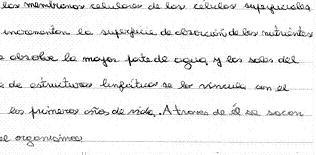 las membranas celulares de las celulas superficiales
incrementan la superficie de absorción de los nutrientes
se absolve la mayor parte de agua y las sales del
s de estructuras linfáticas se lo vincula con el
los primeros años de vida. A traves de él se sacan
el organismo